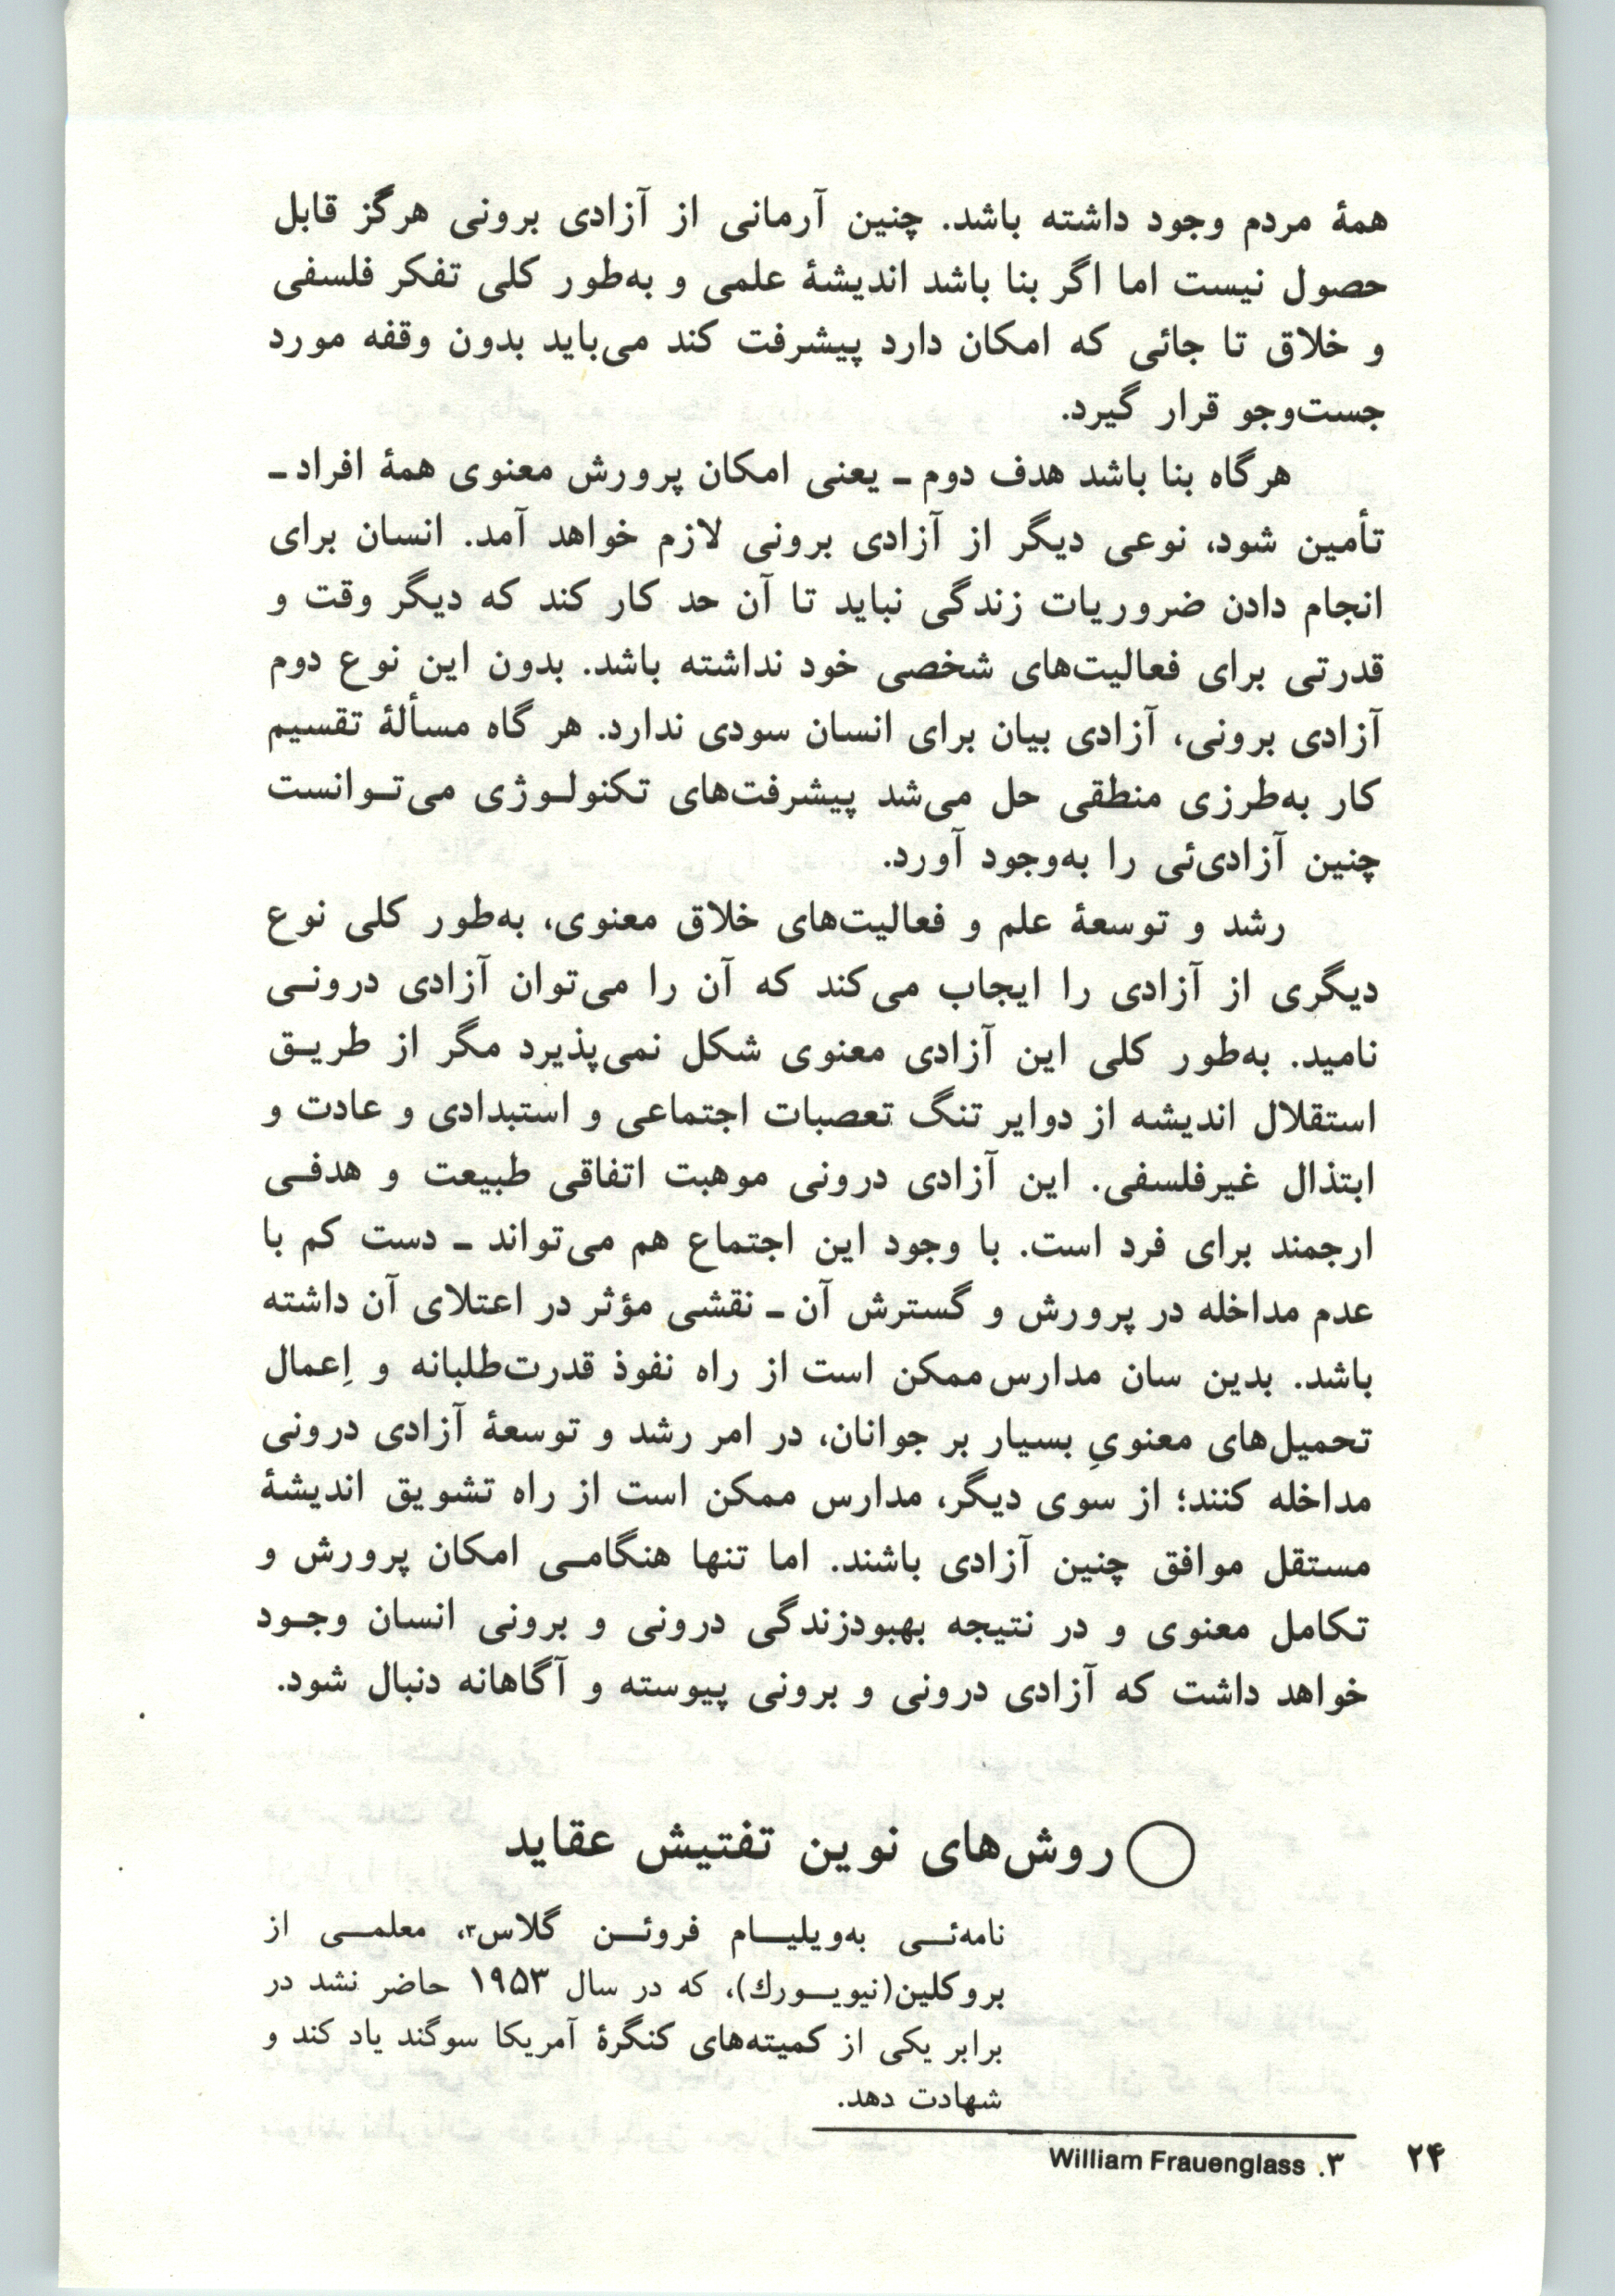 همهٔ مردم وجود داشته باشد. چنین آرمانی از آزادی برونی هرگز قابل
حصول نیست اما اگر بنا باشد اندیشهٔ علمی و به‌طور کلی تفکر فلسفی
و خلاق تا جائی که امکان دارد پیشرفت کند می‌باید بدون وقفه مورد
جست‌وجو قرار گیرد.
هرگاه بنا باشد هدف دوم ـ یعنی امکان پرورش معنوی همهٔ افراد ـ
تأمین شود، نوعی دیگر از آزادی برونی لازم خواهد آمد. انسان برای
انجام دادن ضروریات زندگی نباید تا آن حد کار کند که دیگر وقت و
قدرتی برای فعالیت‌های شخصی خود نداشته باشد. بدون این نوع دوم
آزادی برونی، آزادی بیان برای انسان سودی ندارد. هر گاه مسألهٔ تقسیم
کار به‌طرزی منطقی حل می‌شد پیشرفت‌های تکنولـوژی می‌تـوانست
چنین آزادی‌ئی را به‌وجود آورد.
رشد و توسعهٔ علم و فعالیت‌های خلاق معنوی، به‌طور کلی نوع
دیگری از آزادی را ایجاب می‌کند که آن را می‌توان آزادی درونـی
نامید. به‌طور کلی این آزادی معنوی شکل نمی‌پذیرد مگر از طریـق
استقلال اندیشه از دوایر تنگ تعصبات اجتماعی و استبدادی و عادت و
ابتذال غیرفلسفی. این آزادی درونی موهبت اتفاقی طبیعت و هدفـی
ارجمند برای فرد است. با وجود این اجتماع هم می‌تواند ـ دست کم با
عدم مداخله در پرورش و گسترش آن ـ نقشی مؤثر در اعتلای آن داشته
باشد. بدین سان مدارس ممکن است از راه نفوذ قدرت‌طلبانه و اِعمال
تحمیل‌های معنویِ بسیار بر جوانان، در امر رشد و توسعهٔ آزادی درونی
مداخله کنند؛ از سوی دیگر، مدارس ممکن است از راه تشویق اندیشهٔ
مستقل موافق چنین آزادی باشند. اما تنها هنگامـی امکان پرورش و
تکامل معنوی و در نتیجه بهبودزندگی درونی و برونی انسان وجـود
خواهد داشت که آزادی درونی و برونی پیوسته و آگاهانه دنبال شود.
روش‌های نوین تفتیش عقاید
نامه‌ئـی به‌ویلیـام فروئـن گلاس۳، معلمـی از
بروکلین(نیویـورك)، که در سال ۱۹۵۳ حاضر نشد در
برابر یکی از کمیته‌های کنگرهٔ آمریکا سوگند یاد کند و
شهادت دهد.
۳. William Frauenglass
۲۴